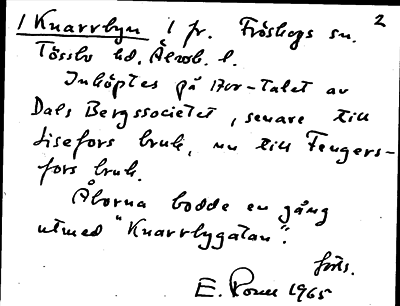 2
1 Knarrbyn i fr. Fröskogs sn.
Tössbo hd. Älvsb. l.
Inköptes på 1700-talet av
Dals Bergssocietet, senare till
Lisefors bruk, nu till Fengers-
fors bruk.
Åborna bodde en gång
utmed "Knarrbygatan".
forts.
E. 1965